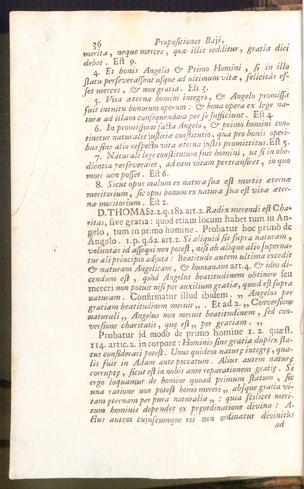 36 Propositiones Baji.
merita, neque merces, quæ illis redditur, gratia dici
debet. Est 9.
4. Et bonis Angelis & Primo Homini, si in illo
statu perseverassent usque ad ultimum vitæ, felicitas es-
set merces, & non gratia. Est 3.
5. Vita æterna homini integro, & Angelo promissa
fuit intuitu bonorum operum: & bona opera ex lege na-
turæ ad illam consequendam per se sufficiunt. Est 4.
6. In promissione facta Angelo, & primo homini con-
tinetur naturalis justitiæ constitutio, qua pro bonis operi-
bus sine alio respectu vita æterna justis promittitur. Est 5.
7. Naturali lege constitutum fuit homini, ut si in obe-
dientia perseveraret, ad eam vitam pertransiret, in qua
mori non posset. Est 6.
8. Sicut opus malum ex natura sua est mortis æternæ
meritorium, sic opus bonum ex natura sua est vitæ æter-
næ meritorium. Est 2.
D. THOMAS 2.2.q. 182 art 2. Radix merendi est Cha-
ritas, sive gratia: quod etiam locum habet tum in An-
gelo, tum in primo homine. Probatur hoc primò de
Angelo. 1.p.q.62. art. 2. Si aliquid sit supra naturam,
voluntas id assequi non potest, nisi ab aliquo alio superna-
turali principio adjuta: Beatitudo autem ultima excedit
& naturam Angelicam, & humanam art. 4. & ideo di-
cendum est, quod Angelus beatitudinem obtinere seu
mereri non potuit nisi per auxilium gratiæ, quod est supra
naturam. Confirmatur illud ibidem. „ Angelus per
gratiam beatitudinem meruit „. Et ad 2. „ Conversione
naturali „ Angelus non meruit beatitudinem, sed con-
versione charitatis, quæ est „ per gratiam. „
Probatur id modo de primo homine 1. 2. quæst.
114. artic. 2. in corpore: Hominis sine gratia duplex sta-
tus considerari potest. Unus quidem naturæ integræ, qua-
lis fuit in Adam ante peccatum. Alius autem naturæ
corruptæ, sicut est in nobis ante reparationem gratiæ. Si
ergo loquamur de homine quoad primum statum, sic
una ratione non potest homo mereri „ absque gratia vi-
tam æternam per pura naturalia „: quia scilicet meri-
tum hominis dependet ex præordinatione divina: A-
ctus autem cujuscumque rei non ordinatur divinitus
ad